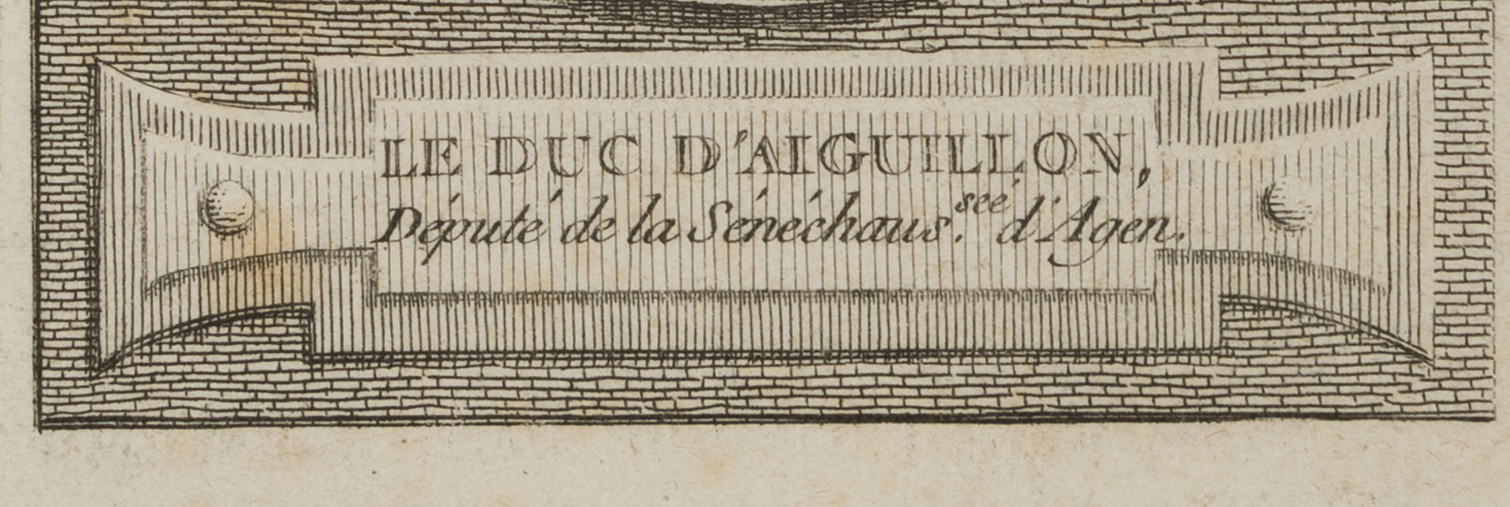 LE DUC D'AIGUILLON,
Député de la Sénéchaus.sée d'Agen.